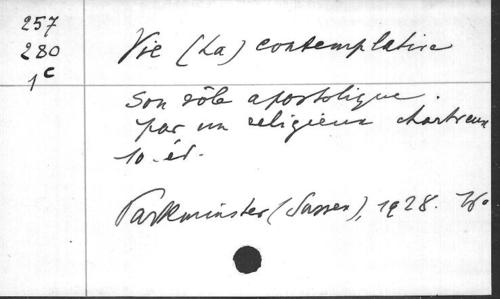 257
280
1c
Vie (La) contemplative
son rôle apostolique.
par un religieux chartreux
10. éd.
Parkminster (Sussex), 1928.